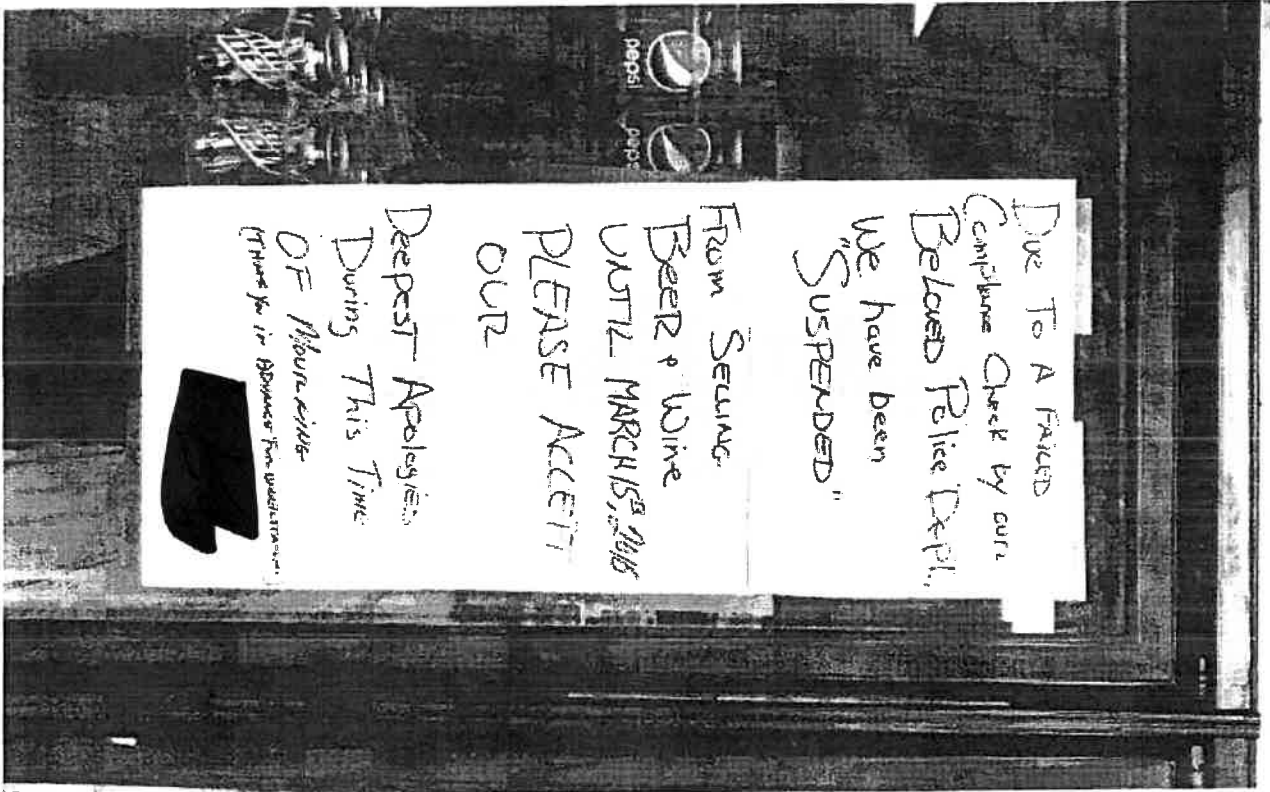 Due To A FAILED
Compliance Check by our
BeLoved Police Dept.
We have been
"SUSPENDED"
From SELLING
BEER & Wine
UNTIL MARCH 15,
PLEASE ACCEPT
OUR
Deepest Apologies
During This Time
OF
(Thank You in ADVANCE For
pepsi
pepsi